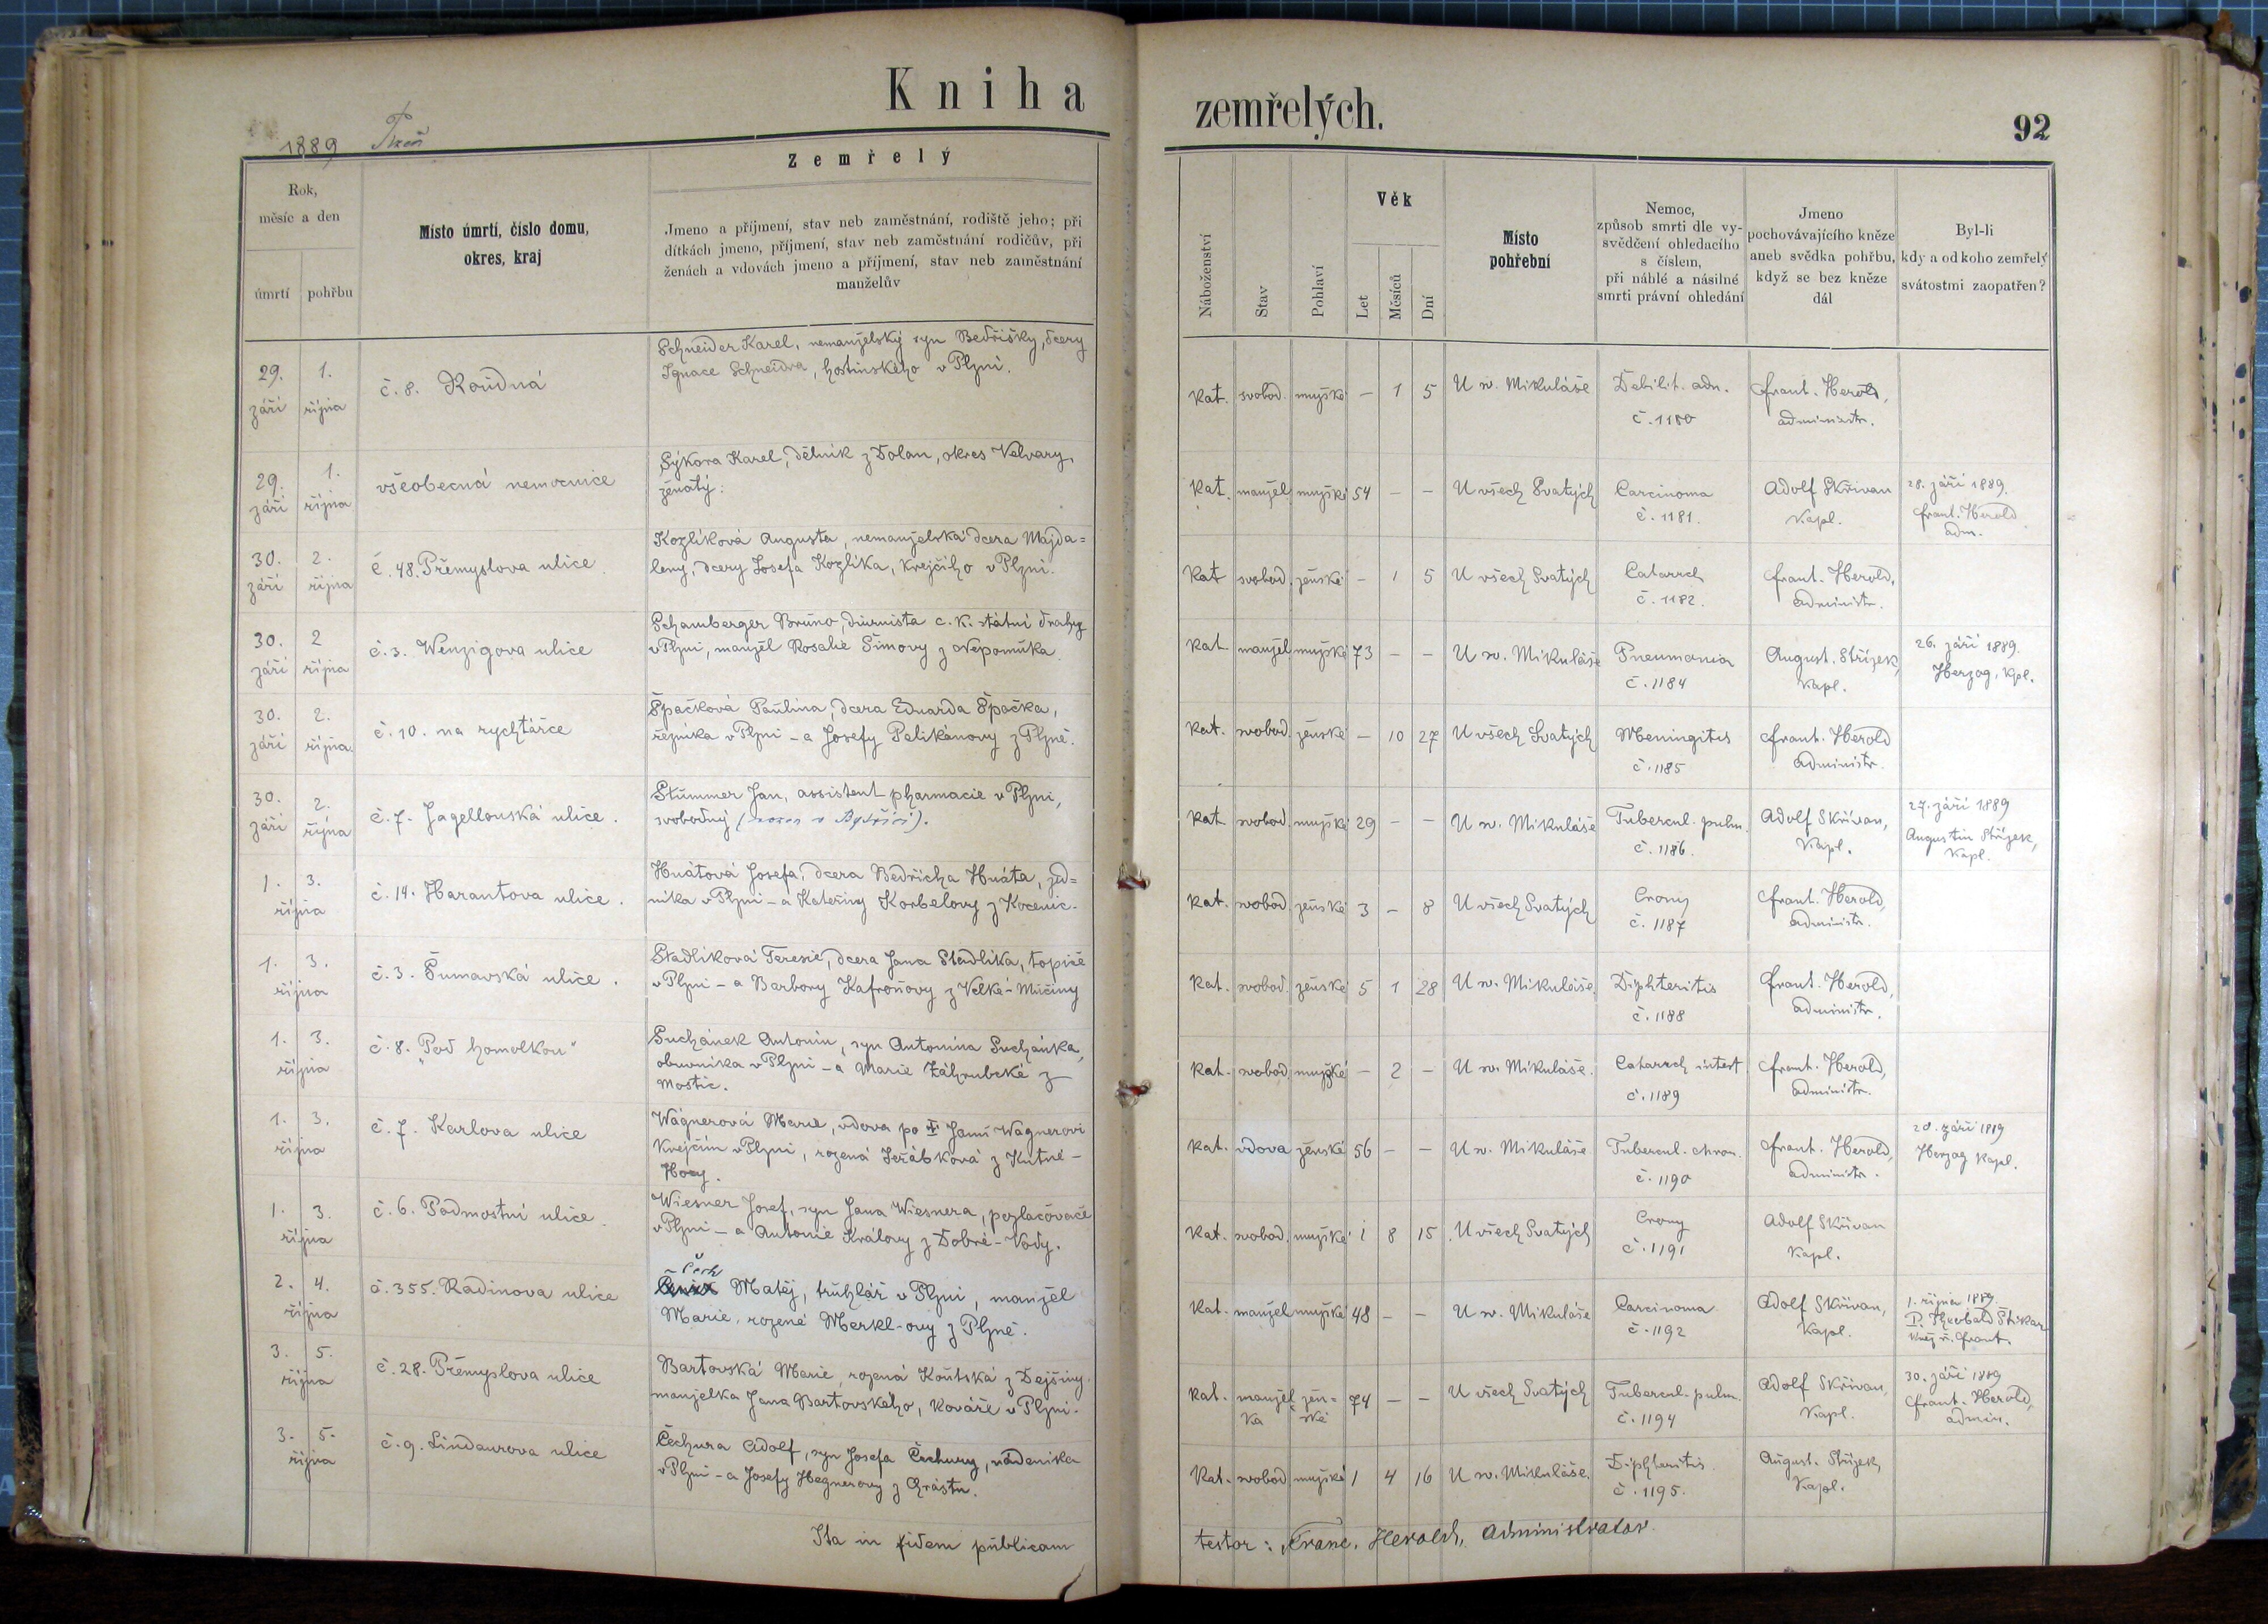 Kniha zemřelých.
92
1889 Plzeň
Rok,
měsíc a den
úmrtí
pohřbu
Místo úmrtí, číslo domu,
okres, kraj
Zemřelý
Jmeno a příjmení, stav neb zaměstnání, rodiště jeho; při
dítkách jmeno, příjmení, stav neb zaměstnání rodičův, při
ženách a vdovách jmeno a příjmení, stav neb zaměstnání
manželův
Náboženství
Stav
Pohlaví
Věk
Let
Měsíců
Dní
Místo
pohřební
Nemoc,
způsob smrti dle vy-
svědčení ohledacího
s číslem,
při náhlé a násilné
smrti právní ohledání
Jmeno
pochovávajícího kněze
aneb svědka pohřbu,
když se bez kněze
dál
Byl-li
kdy a od koho zemřelý
svátostmi zaopatřen?
29. září
1. října
č. 8. Roudná
Schneider Karel, nemanželský syn Bedřišky, dcery
Ignace Schneidra, hostinského v Plzni.
kat. svobod. mužské – 1 5 U sv. Mikuláše
Debilit. adn.
č. 1180
Frant. Herold,
administr.
29. září
1. října
všeobecná nemocnice
Sýkora Karel, dělník z Dolan, okres Velvary,
ženatý.
kat. manžel mužské 54 – – U všech Svatých
Carcinoma
č. 1181.
Adolf Skřivan
kapl.
28. září 1889.
Frant. Herold
adm.
30. září
2. října
č. 48. Přemyslova ulice
Kozlíková Augusta, nemanželská dcera Majda=
leny, dcery Josefa Kozlíka, krejčího v Plzni.
kat svobod. ženské – 1 5 U všech Svatých
Catarrh
č. 1182.
Frant. Herold,
administr.
30. září
2 října
č. 3. Wenzigova ulice
Schamberger Bruno, diurnista c. k. státní dráhy
v Plzni, manžel Rosalie Šimovy z Nepomuka
kat. manžel mužské 73 – – U sv. Mikuláše
Pneumonia
č. 1184
August. Střížek,
kapl.
26. září 1889.
Herzog, kpl.
30. září
2. října
č. 10. na rychtářce
Špačková Paulina, dcera Eduarda Špačka,
řezníka v Plzni – a Josefy Pelikánovy z Plzně.
kat. svobod. ženské – 10 27 U všech Svatých
Meningitis
č. 1185
Frant. Herold
administr.
30. září
2. října
č. 7. Jagellonská ulice.
Stummer Jan, assistent pharmacie v Plzni,
svobodný
kat. svobod. mužské 29 – – U sv. Mikuláše
Tubercul. pulm.
č. 1186.
Adolf Skřivan,
kapl.
27. září 1889
Augustin Střížek,
kapl.
1. 3.
října
č. 14. Harantova ulice.
Hnátová Josefa, dcera Bedřicha Hnáta, zed=
níka v Plzni – a Kateřiny Korbelovy z Kocenic.
kat. svobod. ženské 3 – 8 U všech Svatých
Crony
č. 1187
Frant. Herold,
administr.
1. 3.
října
č. 3. Šumavská ulice.
Stadlíková Teresie, dcera Jana Stadlíka, topiče
v Plzni – a Barbory Kafroňovy z Velké-Mičiny
kat. svobod. ženské 5 1 28 U sv. Mikuláše
Diphteritis
č. 1188
Frant. Herold,
administr.
1. 3.
října
č. 8. "Pod homolkou"
Suchánek Antonín, syn Antonína Suchánka,
obuvníka v Plzni – a Marie Záhrubské z
Mostic.
kat. svobod. mužské – 2 – U sv. Mikuláše.
Catarrh intest
č. 1189
Frant. Herold,
administr.
1. 3.
října
č. 7. Karlova ulice
Wágnerová Marie, vdova po ‡ Janu Wágnerovi
krejčím v Plzni, rozená Jeřábková z Kutné-
Hory.
kat. vdova ženské 56 – – U sv. Mikuláše
Tubercul. chron.
č. 1190
Frant. Herold,
administr.
20. září 1889
Herzog kapl.
1. 3.
října
č. 6. Podmostní ulice.
Wiesner Josef, syn Jana Wiesnera, pozlacovače
v Plzni – a Antonie Královy z Dobré-Vody.
kat. svobod. mužské 1 8 15 U všech Svatých
Crony
č. 1191
Adolf Skřivan
kapl.
2. 4.
října
č. 355. Radinova ulice
Čech
Matěj, truhlář v Plzni, manžel
Marie, rozené Merkl-ovy z Plzně.
kat. manžel mužské 48 – – U sv. Mikuláše
Carcinoma
č. 1192
Adolf Skřivan,
kapl.
1. října 1889
3. 5.
října
č. 28. Přemyslova ulice
Bartovská Marie, rozená Koutská z Dejšiny
manželka Jana Bartovského, kováře v Plzni.
kat. manžel= ka žen= ské 74 – – U všech Svatých
Tubercul. pulm.
č. 1194
Adolf Skřivan,
kapl.
30. září 1889
Frant. Herold,
admin.
3. 5.
října
č. 9. Lindaurova ulice
Čechura Adolf, syn Josefa Čechury, nádeníka
v Plzni – a Josefy Hegnerovy z Chrástu.
kat. svobod. mužské 1 4 16 U sv. Mikuláše.
Diphteritis.
č. 1195.
August. Střížek,
kapl.
Ita in fidem publicam
testor: Franc. Herold, Administrator